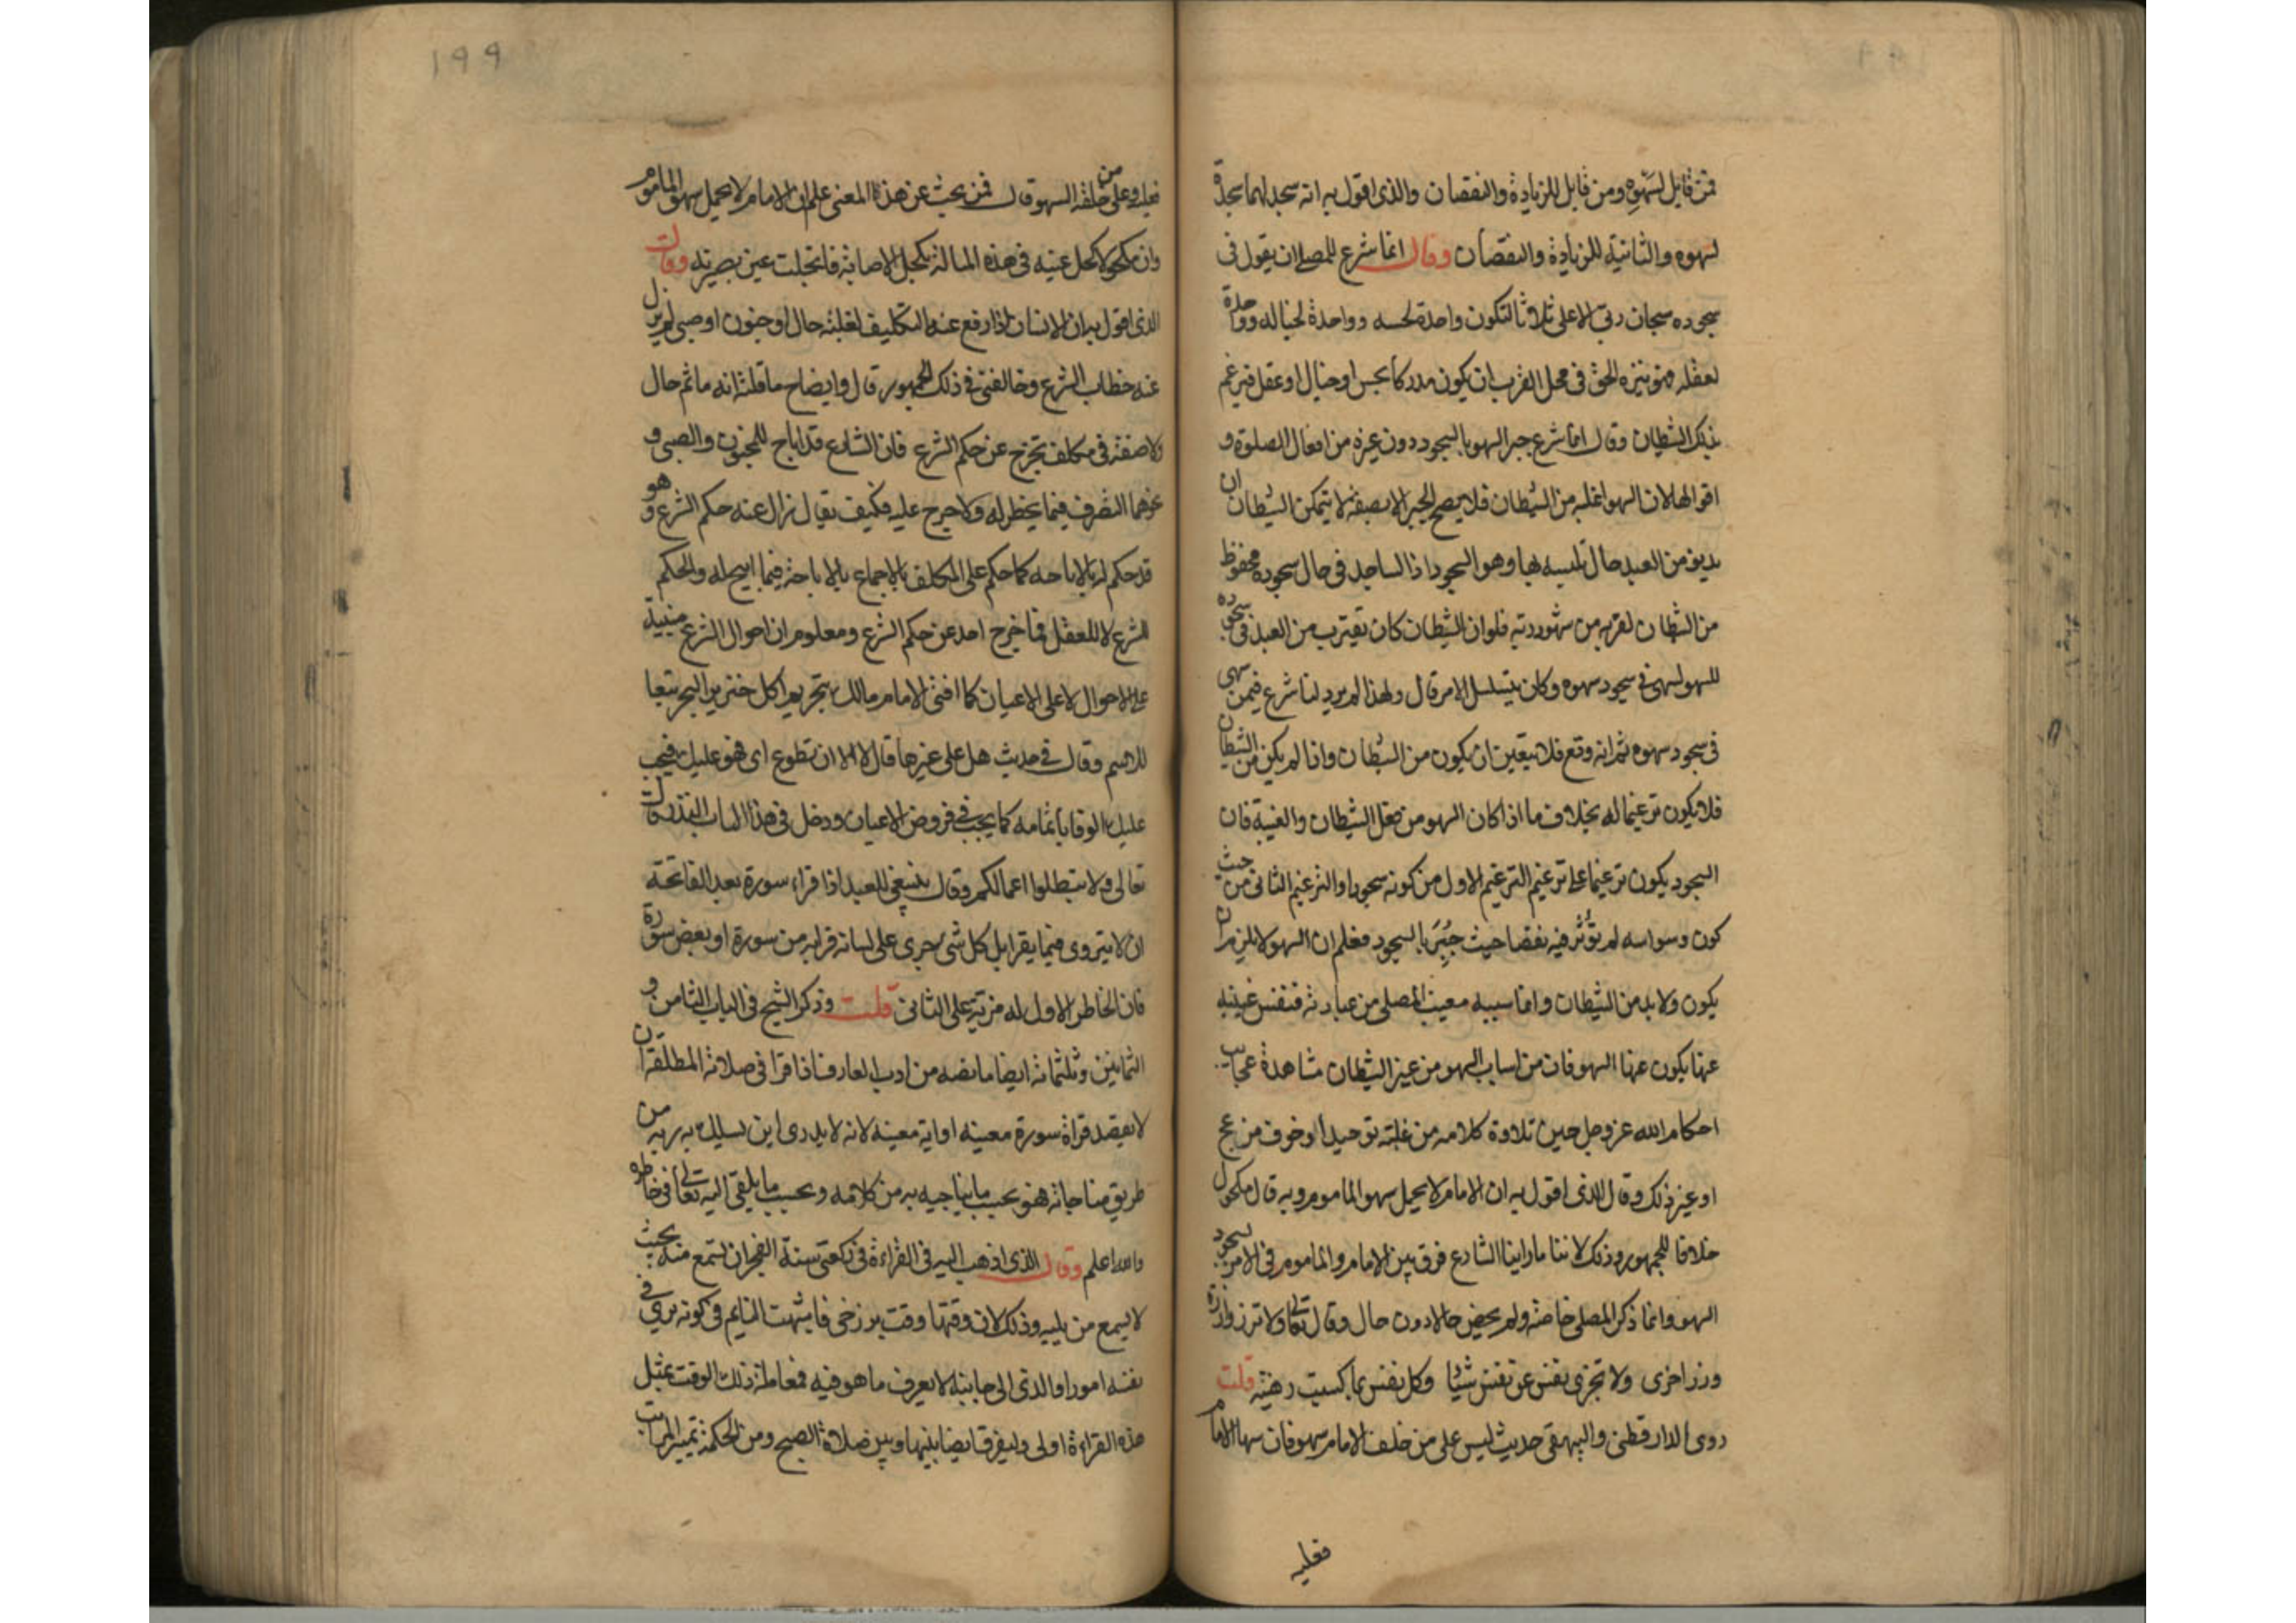 فمن قايل لسهوه ومن قايل للزيادة والنقصان والذى اقول به انه سجد لهما سجدة
لسهوه والثانية للزيادة والنقصان وقال انما شرع للمصلى ان يقول فى
سجوده سبحان ربى الاعلى ثلاثا لتكون واحدة لحسه وواحدة لخياله وواحدة
لعقله فهو ينزه الحق فى محل القرب ان يكون مدركا بحس او خيال او عقل فيرغم
بذلك الشيطان وقال انما شرع جبر السهو بالسجود دون غيره من افعال الصلوة و
اقوالها لان السهو اغلبه من الشيطان فلا يصح الجبر الا بصفة لا يتمكن الشيطان ان
يدنو من العبد حال تلبسه بها وهو السجود اذ الساجد فى حال سجوده محفوظ
من الشيطان لقربه من شهود ربه فلو ان الشيطان كان يقترب من العبد فى سجوده
للسهو لسهى فى سجود سهوه وكان يتسلسل الامر قال ولهذا لم يرد لنا شرع فيمن سهى
فى سجود سهوه ثم انه وقع فلا يتعين ان يكون من الشيطان واذا لم يكن من الشيطان
فلا يكون ترغيما له بخلاف ما اذا كان السهو من فعل الشيطان والغيبة فان
السجود يكون ترغيما على ترغيم الترغيم الاول من كونه سجودا والترغيم الثانى من حيث
كون وسواسه لم تؤثر فيه نقصا حيث جبر بالسجود فعلم ان السهو لا يلزم ان
يكون ولا بد من الشيطان وانما سببه مغيب المصلى عن عبادته فنفس غيبته
عنها يكون عنها السهو فان من اسباب السهو من غير الشيطان مشاهدة عجايب
احكام الله عز وجل حين تلاوة كلامه من غلبة توحيد او خوف مزعج
او غير ذلك وقال الذى اقول به ان الامام لا يحمل سهو الماموم وبه قال مكحول
خلافا للجمهور وذلك لاننا ما راينا الشارع فرق بين الامام والماموم فى الامر بسجود
السهو وانما ذكر المصلى خاصة ولم يخص حالا دون حال وقال تعالى ولا تزر وازرة
وزر اخرى ولا تجزى نفس عن نفس شيئا وكل نفس بما كسبت رهينة قلت
روى الدارقطنى والبيهقى حديث ليس على من خلف الامام سهو فان سها الامام
فعليه
١٩٩
فعليه وعلى من خلفه السهو قال فمن بحث عن هذا المعنى علم ان الامام لا يحمل سهو الماموم
وان مكحولا كحل عينه فى هذه المسالة بكحل الاصابة فانجلت عين بصيرته وقال
الذى اقول به ان الانسان اذا رفع عنه التكليف لغلبة حال او جنون او صبى لم يزل
عنه خطاب الشرع وخالفنى فى ذلك الجمهور قال وايضاح ما قلته انه ما ثم حال
ولا صفة فى مكلف تخرج عن حكم الشرع فان الشارع قد اباح للمجنون والصبى و
غيرهما التصرف فيما يخطر له ولا حرج عليه فكيف يقال زال عنه حكم الشرع وهو
قد حكم له بالاباحه كما حكم على المكلف بالاجماع بالاباحة فيما ابيح له والحكم
للشرع لا للعقل فما خرج احد عن حكم الشرع ومعلوم ان احوال الشرع مبنية
على الاحوال لا على الاعيان كما افتى الامام مالك بتحريم اكل خنزير البحر تبعا
للاسم وقال فى حديث هل على غيرها قال لا الا ان تطوع اى فهو عليك فيجب
عليك الوفا باتمامه كما يجب فى فروض الاعيان ودخل فى هذا الباب النذر قال
تعالى ولا تبطلوا اعمالكم وقال ينبغى للعبد اذا قراء سورة بعد الفاتحة
ان لا يتروى فيما يقرا بل كل شى جرى على لسانه قرا به من سورة او بعض سورة
فان الخاطر الاول له مزية على الثانى قلت وذكر الشيخ فى الباب الثامن و
الثمانين وثلثمائة ايضا ما نصه من ادب العارف اذا قرا فى صلاته المطلقة ان
لا يقصد قراة سورة معينه او اية معينه لانه لا يدرى اين يسلك به ربه من
طريق مناجاته فهو بحسب ما يناجيه به من كلامه وبحسب ما يلقى اليه تعالى فى خاطره
والله اعلم وقال الذى اذهب اليه فى القراءة فى ركعتى سنة الفجر ان تسمع منه بحيث
لا يسمع من يليه وذلك لان وقتها وقت برزخى فاشبهت النايم فى كونه يرى فى
نفسه امورا والذى الى جانبه لا يعرف ما هو فيه فمعاملة ذلك الوقت بمثل
هذه القراءة اولى وليفرق ايضا بينها وبين صلاة الصبح ومن الحكمة تمييز المراتب